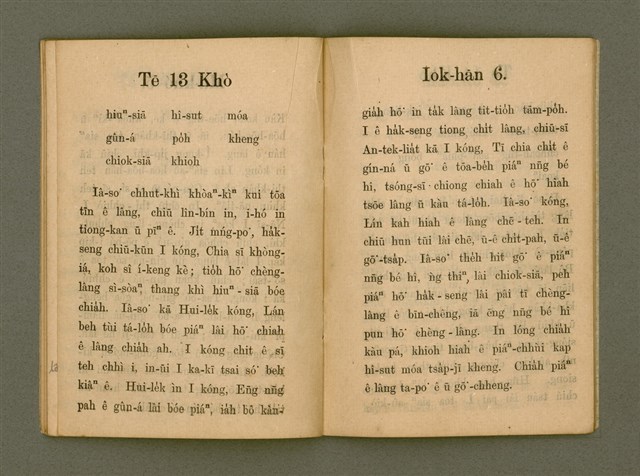 Tē 13 Khò
hiuⁿ-siā hî-sut móa
gûn-á po̍h kheng
chiok-siā khioh
Iâ-so͘ chhut-khì khòaⁿ-kìⁿ kui tōa
tīn ê lâng, chiū lîn-bín in, i-hó in
tiong-kan ū pīⁿ ê. Ji̍t mńg-po͘, ha̍k-
seng chiū-kūn I kóng, Chia sī khòng-
iá, koh sî í-keng kè; tio̍h hō͘ chèng-
lâng sì-sòaⁿ, thang khì hiuⁿ-siā bóe
chia̍h. Iâ-so͘ kā Hui-le̍k kóng, Lán
beh tùi tá-lo̍h bóe piáⁿ lâi hō͘ chiah
ê lâng chia̍h ah. I kóng chit ê sī
teh chhì i, in-ūi I ka-kī tsai só͘ beh
kiâⁿ ê. Hui-le̍k ìn I kóng, Eñg nn̄g
pah ê gûn-á lâi bóe piáⁿ, ia̍h bô kàn-
Iok-hān 6.
gia̍h hō͘ in ta̍k lâng tit-tio̍h tām-po̍h.
I ê ha̍k-seng tiong chi̍t lâng, chiū-sī
An-tek-lia̍t kā I kóng, Tī chia chi̍t ê
gín-ná ū gō͘ ê tōa-be̍h piáⁿ nn̄g bé
hî, tsóng-sī chiong chiah ê hō͘ hiah
tsōe lâng ū kàu tá-lo̍h. Iâ-so͘ kóng,
Lín kah hiah ê lâng chē-teh. In
chiū hun tūi lâi chē, ū-ê chi̍t-pah, ū-ê
gō͘-tsa̍p. Iâ-so͘ the̍h hit gō͘ ê piáⁿ
nn̄g bé hî, ǹg thiⁿ, lâi chiok-siā, peh
piáⁿ hō͘ ha̍k-seng lâi pâi tī chèng-
lâng ê bīn-chêng, iā ēng nn̄g bé hî
pun hō͘ chèng-lâng. In lóng chia̍h
kàu pá, khioh hiah ê piáⁿ-chhùi kap
hî-sut móa tsa̍p-jī kheng. Chia̍h piáⁿ
ê lâng ta-po͘ ê ū gō͘-chheng.